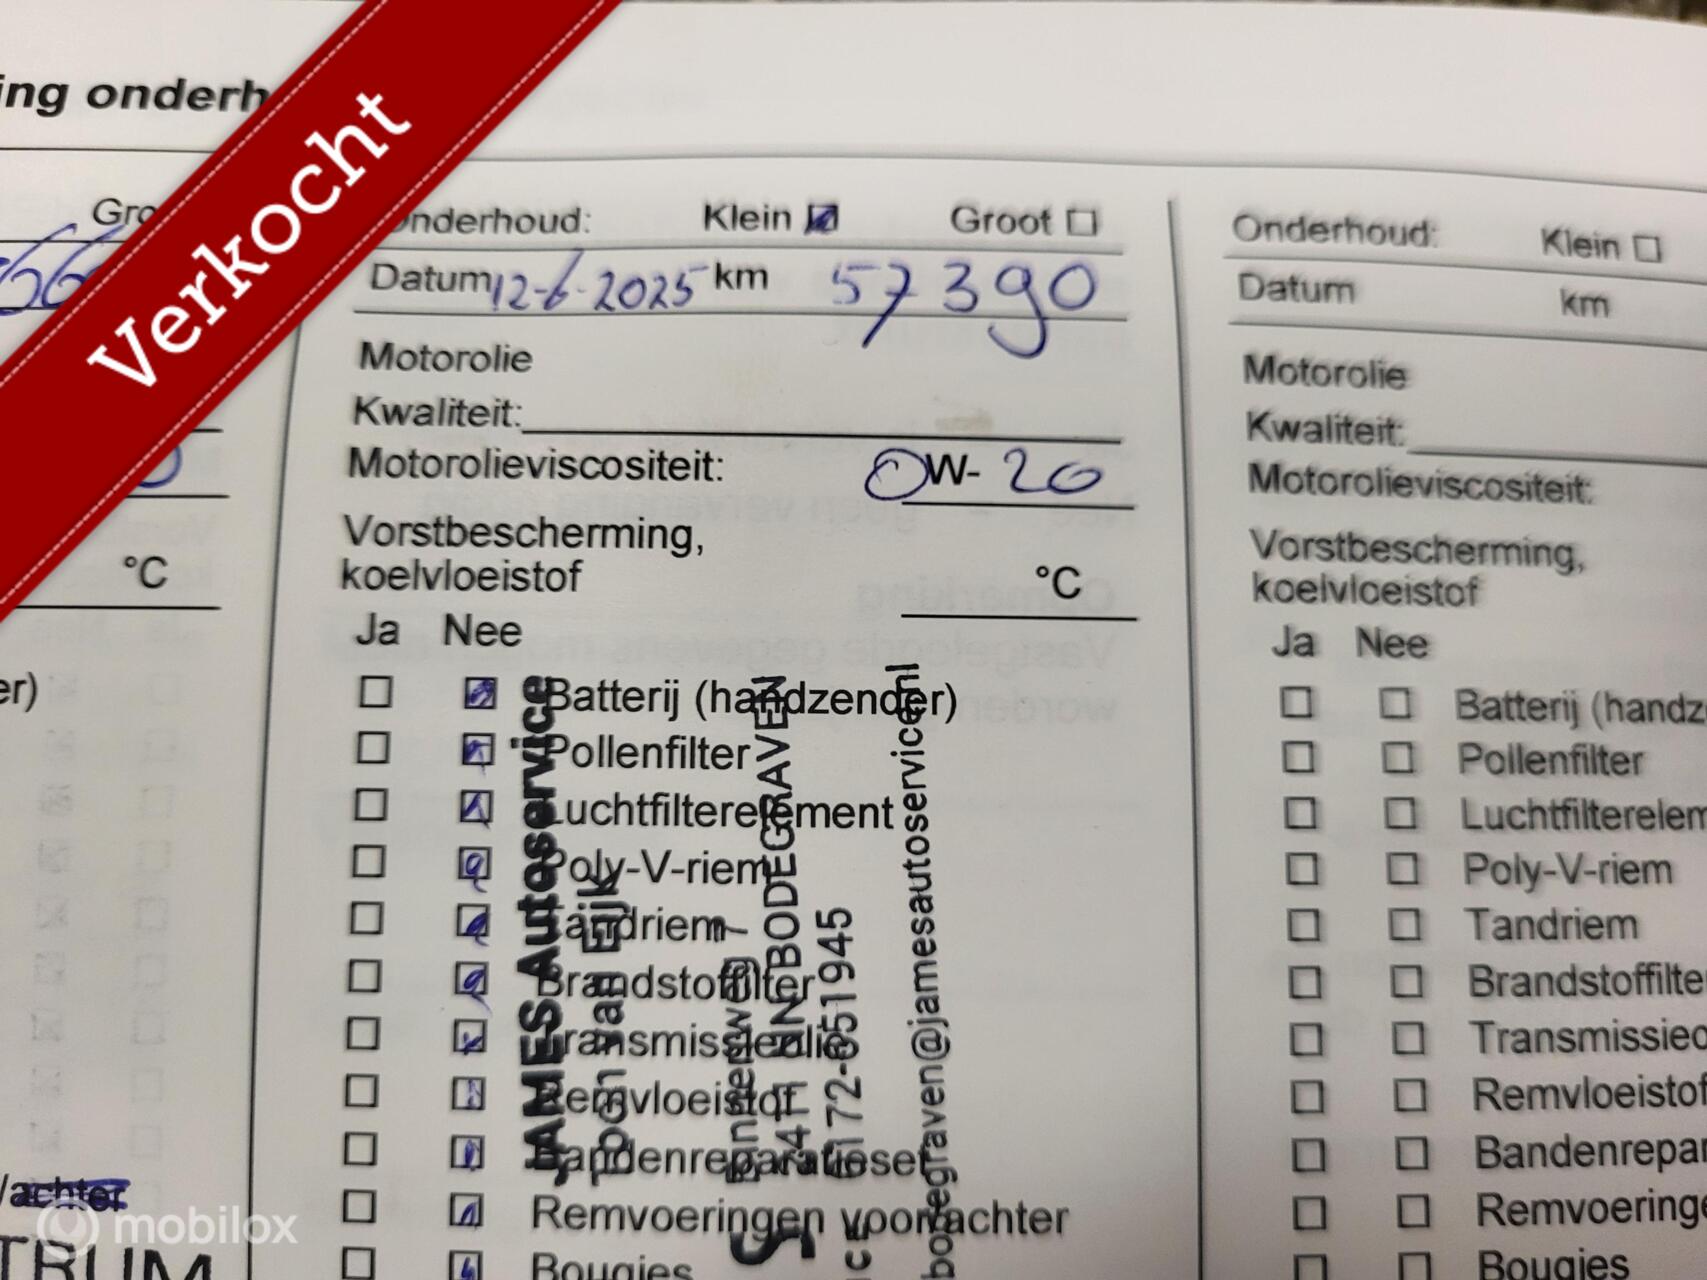 ing onderh
Verkocht
Gro
°C
er)
/achter
TRUM
mobilox
Onderhoud: Klein Groot
Datum 12-6-2025 km 57390
Motorolie
Kwaliteit:
Motorolieviscositeit: 0W-20
Vorstbescherming,
koelvloeistof °C
Ja Nee
Batterij (handzender)
Pollenfilter
Luchtfilterelement
Poly-V-riem
Tandriem
Brandstoffilter
Transmissieolie
Remvloeistof
Bandenreparatieset
Remvoeringen voor/achter
Bougies
JAMES Autoservice
van Eijk
BODEGRAVEN
0172-651945
bodegraven@jamesautoservice.nl
Onderhoud: Klein
Datum km
Motorolie
Kwaliteit:
Motorolieviscositeit:
Vorstbescherming,
koelvloeistof
Ja Nee
Batterij (handz
Pollenfilter
Luchtfilterelem
Poly-V-riem
Tandriem
Brandstoffilte
Transmissieo
Remvloeistof
Bandenrepar
Remvoeringe
Bougies